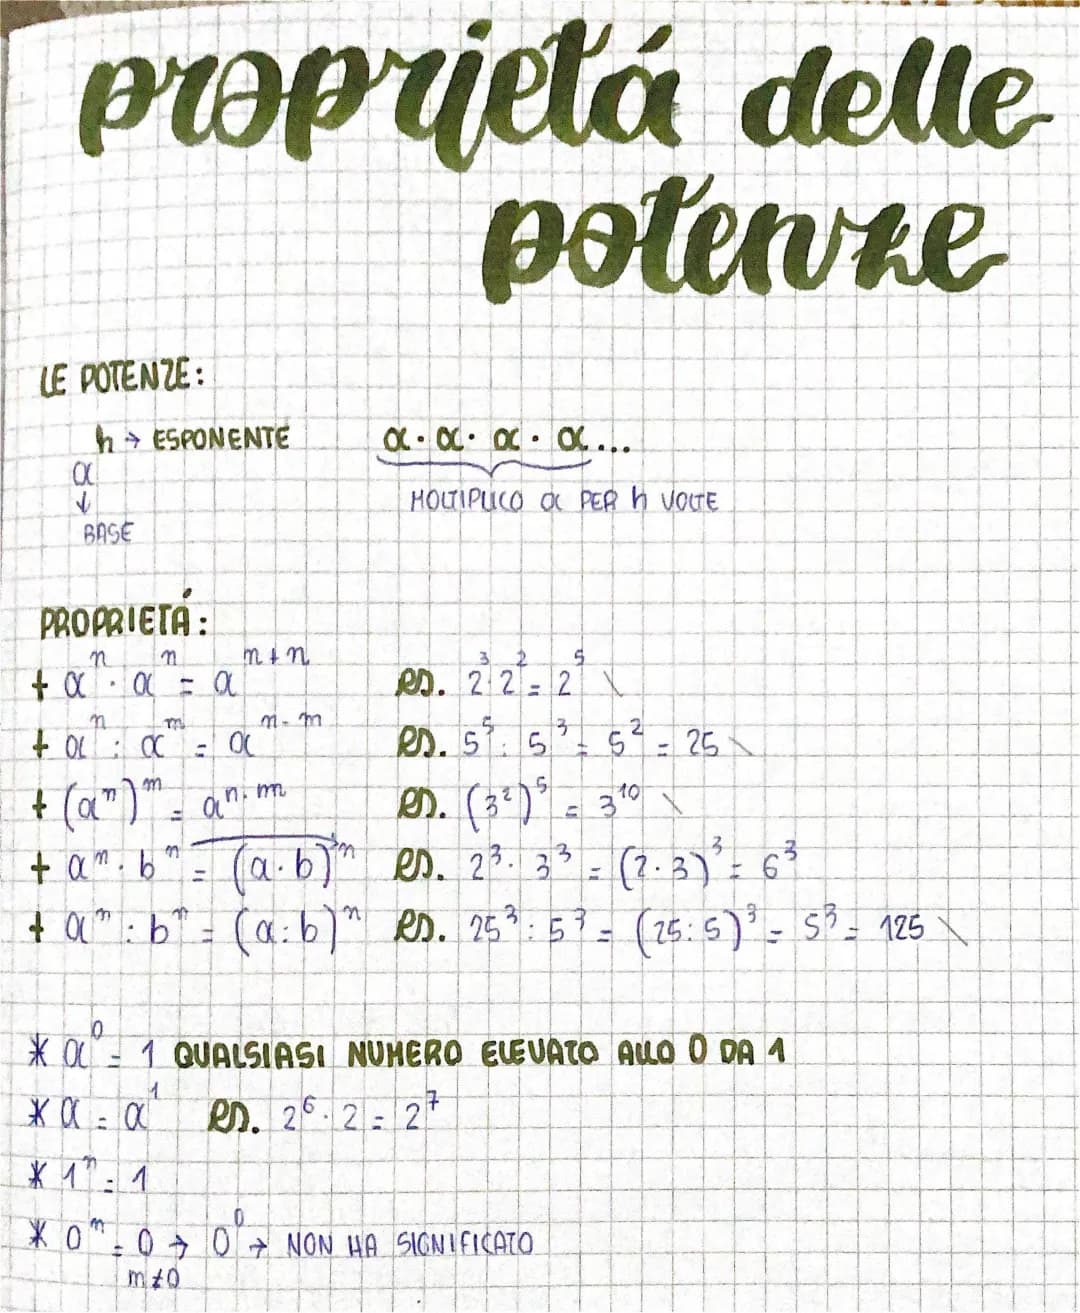 proprietá delle
potenze
LE POTENZE:
h → ESPONENTE
a · a · a · a...
a
↓
BASE
MOLTIPLICO a PER h VOLTE
PROPRIETÁ:
+ aⁿ · aⁿ = aⁿ⁺ⁿ es. 2³·2² = 2⁵ \
+ aⁿ : aᵐ = aⁿ⁻ᵐ es. 5⁵ : 5³ = 5² = 25 \
+ (aⁿ)ᵐ = aⁿ·ᵐ es. (3²)⁵ = 3¹⁰ \
+ aⁿ · bⁿ = (a·b)ⁿ es. 2³ · 3³ = (2·3)³ = 6³
+ aⁿ : bⁿ = (a:b)ⁿ es. 25³ : 5³ = (25:5)³ = 5³ = 125 \
* a⁰ = 1 QUALSIASI NUMERO ELEVATO ALLO 0 DA 1
* a = a¹ es. 2⁶ · 2 = 2⁷
* 1ⁿ = 1
* 0ᵐ = 0 → 0⁰ → NON HA SIGNIFICATO
m ≠ 0